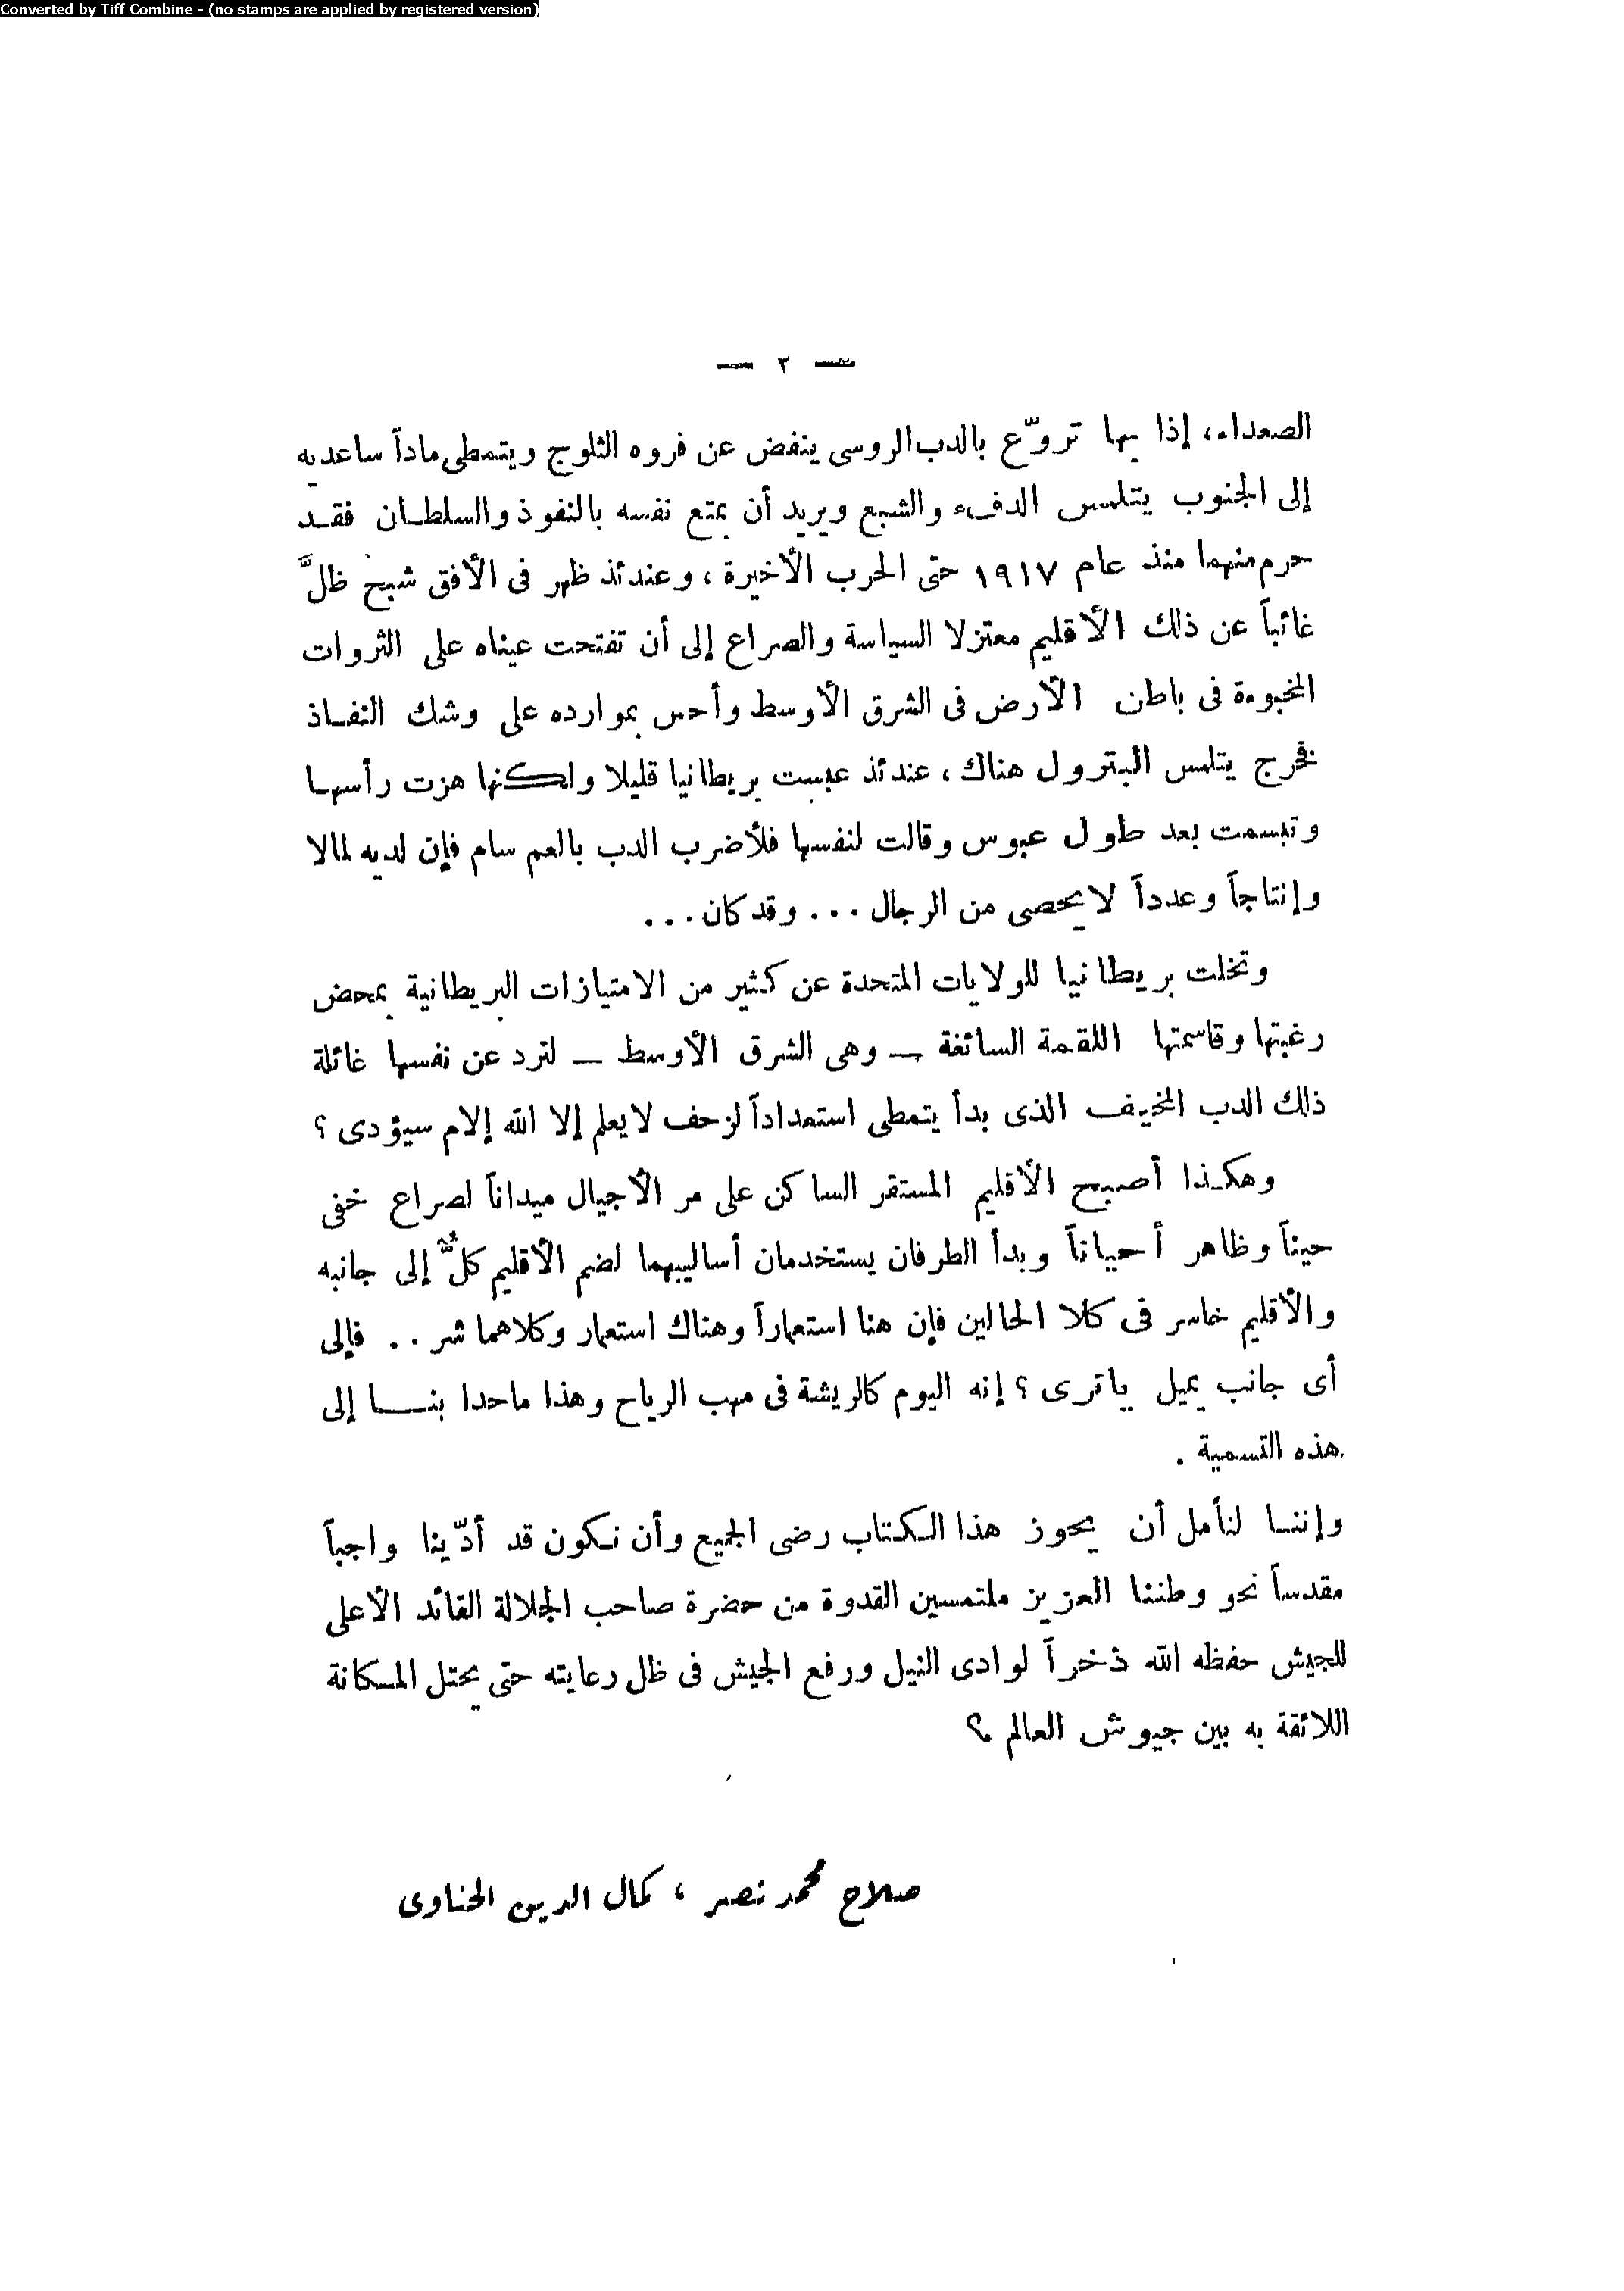 Converted by Tiff Combine - (no stamps are applied by registered version)
— ٢ —
الصعداء، إذا بها تروّع بالدب الروسى ينفض عن فروه الثلوج ويتمطى ماداً ساعديه
إلى الجنوب يتلمس الدفء والشبع ويريد أن يمتع نفسه بالنفوذ والسلطان فقد
حرم منهما منذ عام ١٩١٧ حتى الحرب الأخيرة، وعندئذ ظهر فى الأفق شبح ظلَّ
غائباً عن ذلك الأقليم معتزلا السياسة والصراع إلى أن تفتحت عيناه على الثروات
المخبوءة فى باطن الأرض فى الشرق الأوسط وأحس بموارده على وشك النفاذ
فخرج يتلمس البترول هناك، عندئذ عبست بريطانيا قليلا ولكنها هزت رأسها
وتبسمت بعد طول عبوس وقالت لنفسها فلأضرب الدب بالعم سام فإن لديه لمالا
وإنتاجاً وعدداً لا يحصى من الرجال ... وقد كان ...
وتخلت بريطانيا للولايات المتحدة عن كثير من الامتيازات البريطانية بمحض
رغبتها وقاسمتها اللقمة السائغة — وهى الشرق الأوسط — لترد عن نفسها غائلة
ذلك الدب المخيف الذى بدأ يتمطى استعداداً لزحف لا يعلم إلا الله إلام سيؤدى ؟
وهكذا أصبح الأقليم المستقر الساكن على مر الأجيال ميداناً لصراع خفى
حيناً وظاهر أحياناً وبدأ الطرفان يستخدمان أساليبهما لضم الأقليم كلٌّ إلى جانبه
والأقليم خاسر فى كلا الحالين فإن هنا استعماراً وهناك استعمار وكلاهما شر .. فإلى
أى جانب يميل ياترى ؟ إنه اليوم كالريشة فى مهب الرياح وهذا ماحدا بنا إلى
هذه التسمية .
وإننا لنأمل أن يحوز هذا الكتاب رضى الجميع وأن نكون قد أدّينا واجباً
مقدساً نحو وطننا العزيز ملتمسين القدوة من حضرة صاحب الجلالة القائد الأعلى
للجيش حفظه الله ذخراً لوادى النيل ورفع الجيش فى ظل رعايته حتى يحتل المكانة
اللائقة به بين جيوش العالم ؟
صلاح محمد نصر ، كمال الدين الحناوى